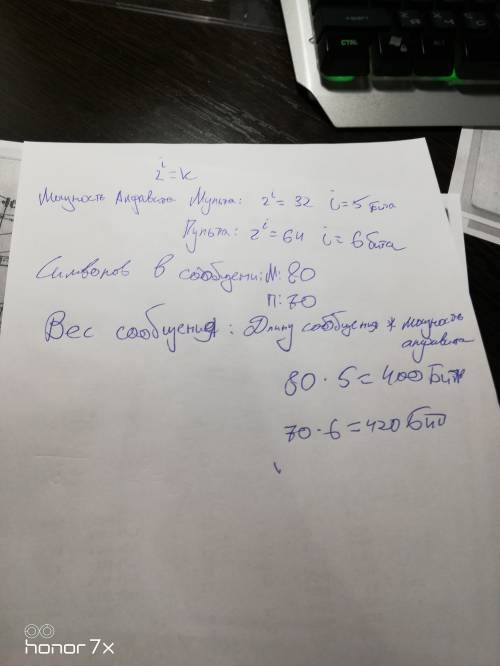 2^i = k
Мощность Алфавита Мульти: 2^i = 32 i = 5 бита
Пульти: 2^i = 64 i = 6 бита
Символов в сообщени: М: 80
П: 70
Вес сообщения: Длину сообщения * мощность
алфавита
80 · 5 = 400 Бит
70 · 6 = 420 Бит
honor 7x
CTRL